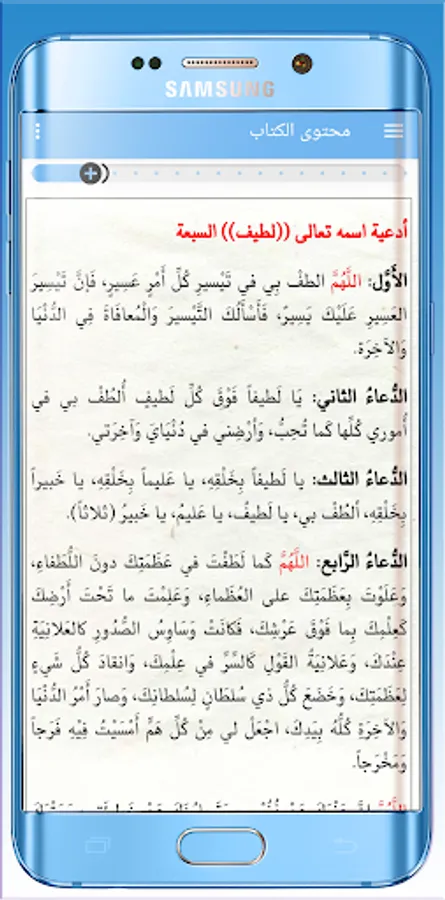 SAMSUNG
محتوى الكتاب
أدعية اسمه تعالى ((لطيف)) السبعة
الأَوَّل: اللَّهُمَّ الطفْ بِي في تَيْسيرِ كُلِّ أَمْرٍ عَسِيرٍ، فَإنَّ تَيْسِيرَ
العَسِيرِ عَلَيْكَ يَسِيرٌ، فَأَسْأَلُكَ التَّيْسيرَ وَالْمُعافَاةَ فِي الدُّنْيَا
وَالآخِرَة.
الدُّعاءُ الثاني: يَا لَطيفاً فَوْقَ كُلِّ لَطيفٍ أُلطُفْ بي في
أُموري كُلِّها كَما تُحِبُّ، وَأَرْضِني في دُنْيَايَ وَآخِرَتي.
الدُّعاءُ الثالث: يا لَطيفاً بِخَلْقِهِ، يا عَليماً بِخَلْقِهِ، يا خَبيراً
بِخَلْقِهِ، ألطُفْ بي، يا لَطيفُ، يا عَليمُ، يا خَبيرُ (ثلاثاً).
الدُّعاءُ الرَّابع: اللَّهُمَّ كَما لَطَفْتَ في عَظَمَتِكَ دونَ اللُّطَفاءِ،
وَعَلَوْتَ بِعَظَمَتِكَ على العُظَماءِ، وَعَلِمْتَ ما تَحْتَ أَرْضِكَ
كَعِلْمِكَ بِما فَوْقَ عَرْشِكَ، فَكانَتْ وَسَاوِسُ الصُّدُورِ كالعَلانِيَةِ
عِنْدَكَ، وَعَلانِيَةُ القَوْلِ كالسِّرِّ في عِلْمِكَ، وَانقادَ كُلُّ شَيءٍ
لِعَظَمَتِكَ، وَخَضَعَ كُلُّ ذي سُلطَانٍ لِسُلطانِكَ، وَصارَ أَمْرُ الدُّنْيَا
وَالآخِرَةِ كُلُّهُ بِيَدِكَ، اجْعَلْ لي مِنْ كُلِّ هَمٍّ أَمْسَيْتُ فِيْهِ فَرَجاً
وَمَخْرَجاً.